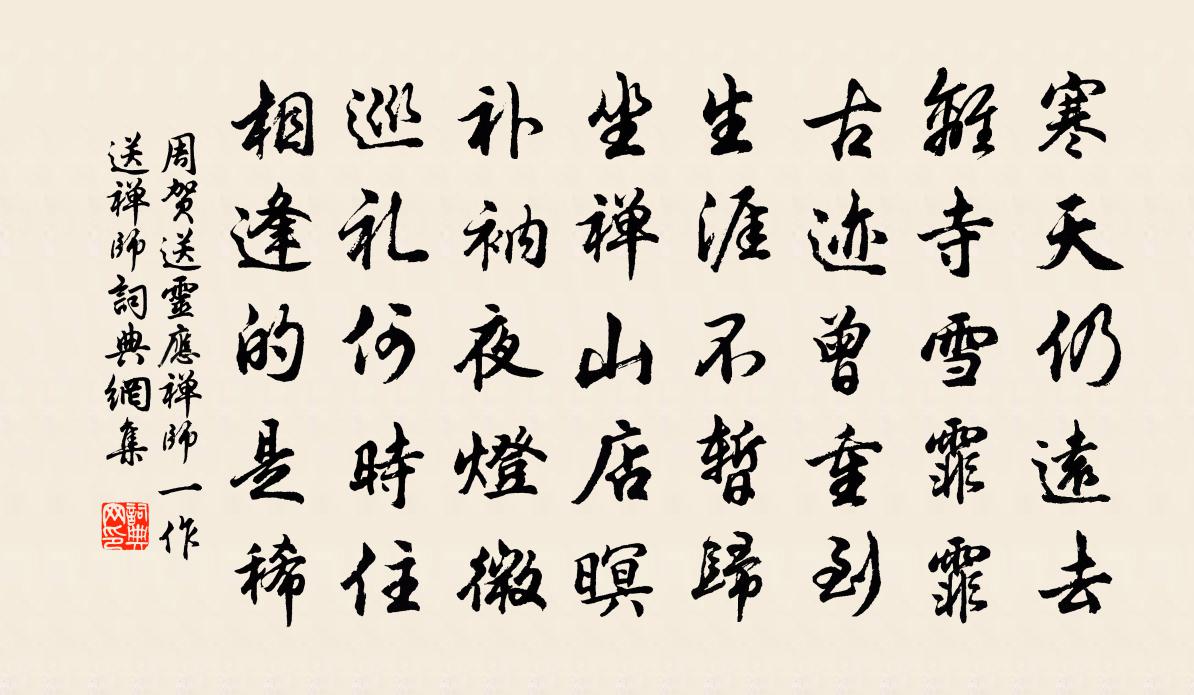 寒天仍遠去
離寺雪霏霏
古迹曾重到
生涯不暫歸
坐禅山店暝
补衲夜燈微
巡礼何時住
相逢的是稀
周贺送靈應禅師 一作
送禅師詞典網集
詞典网印